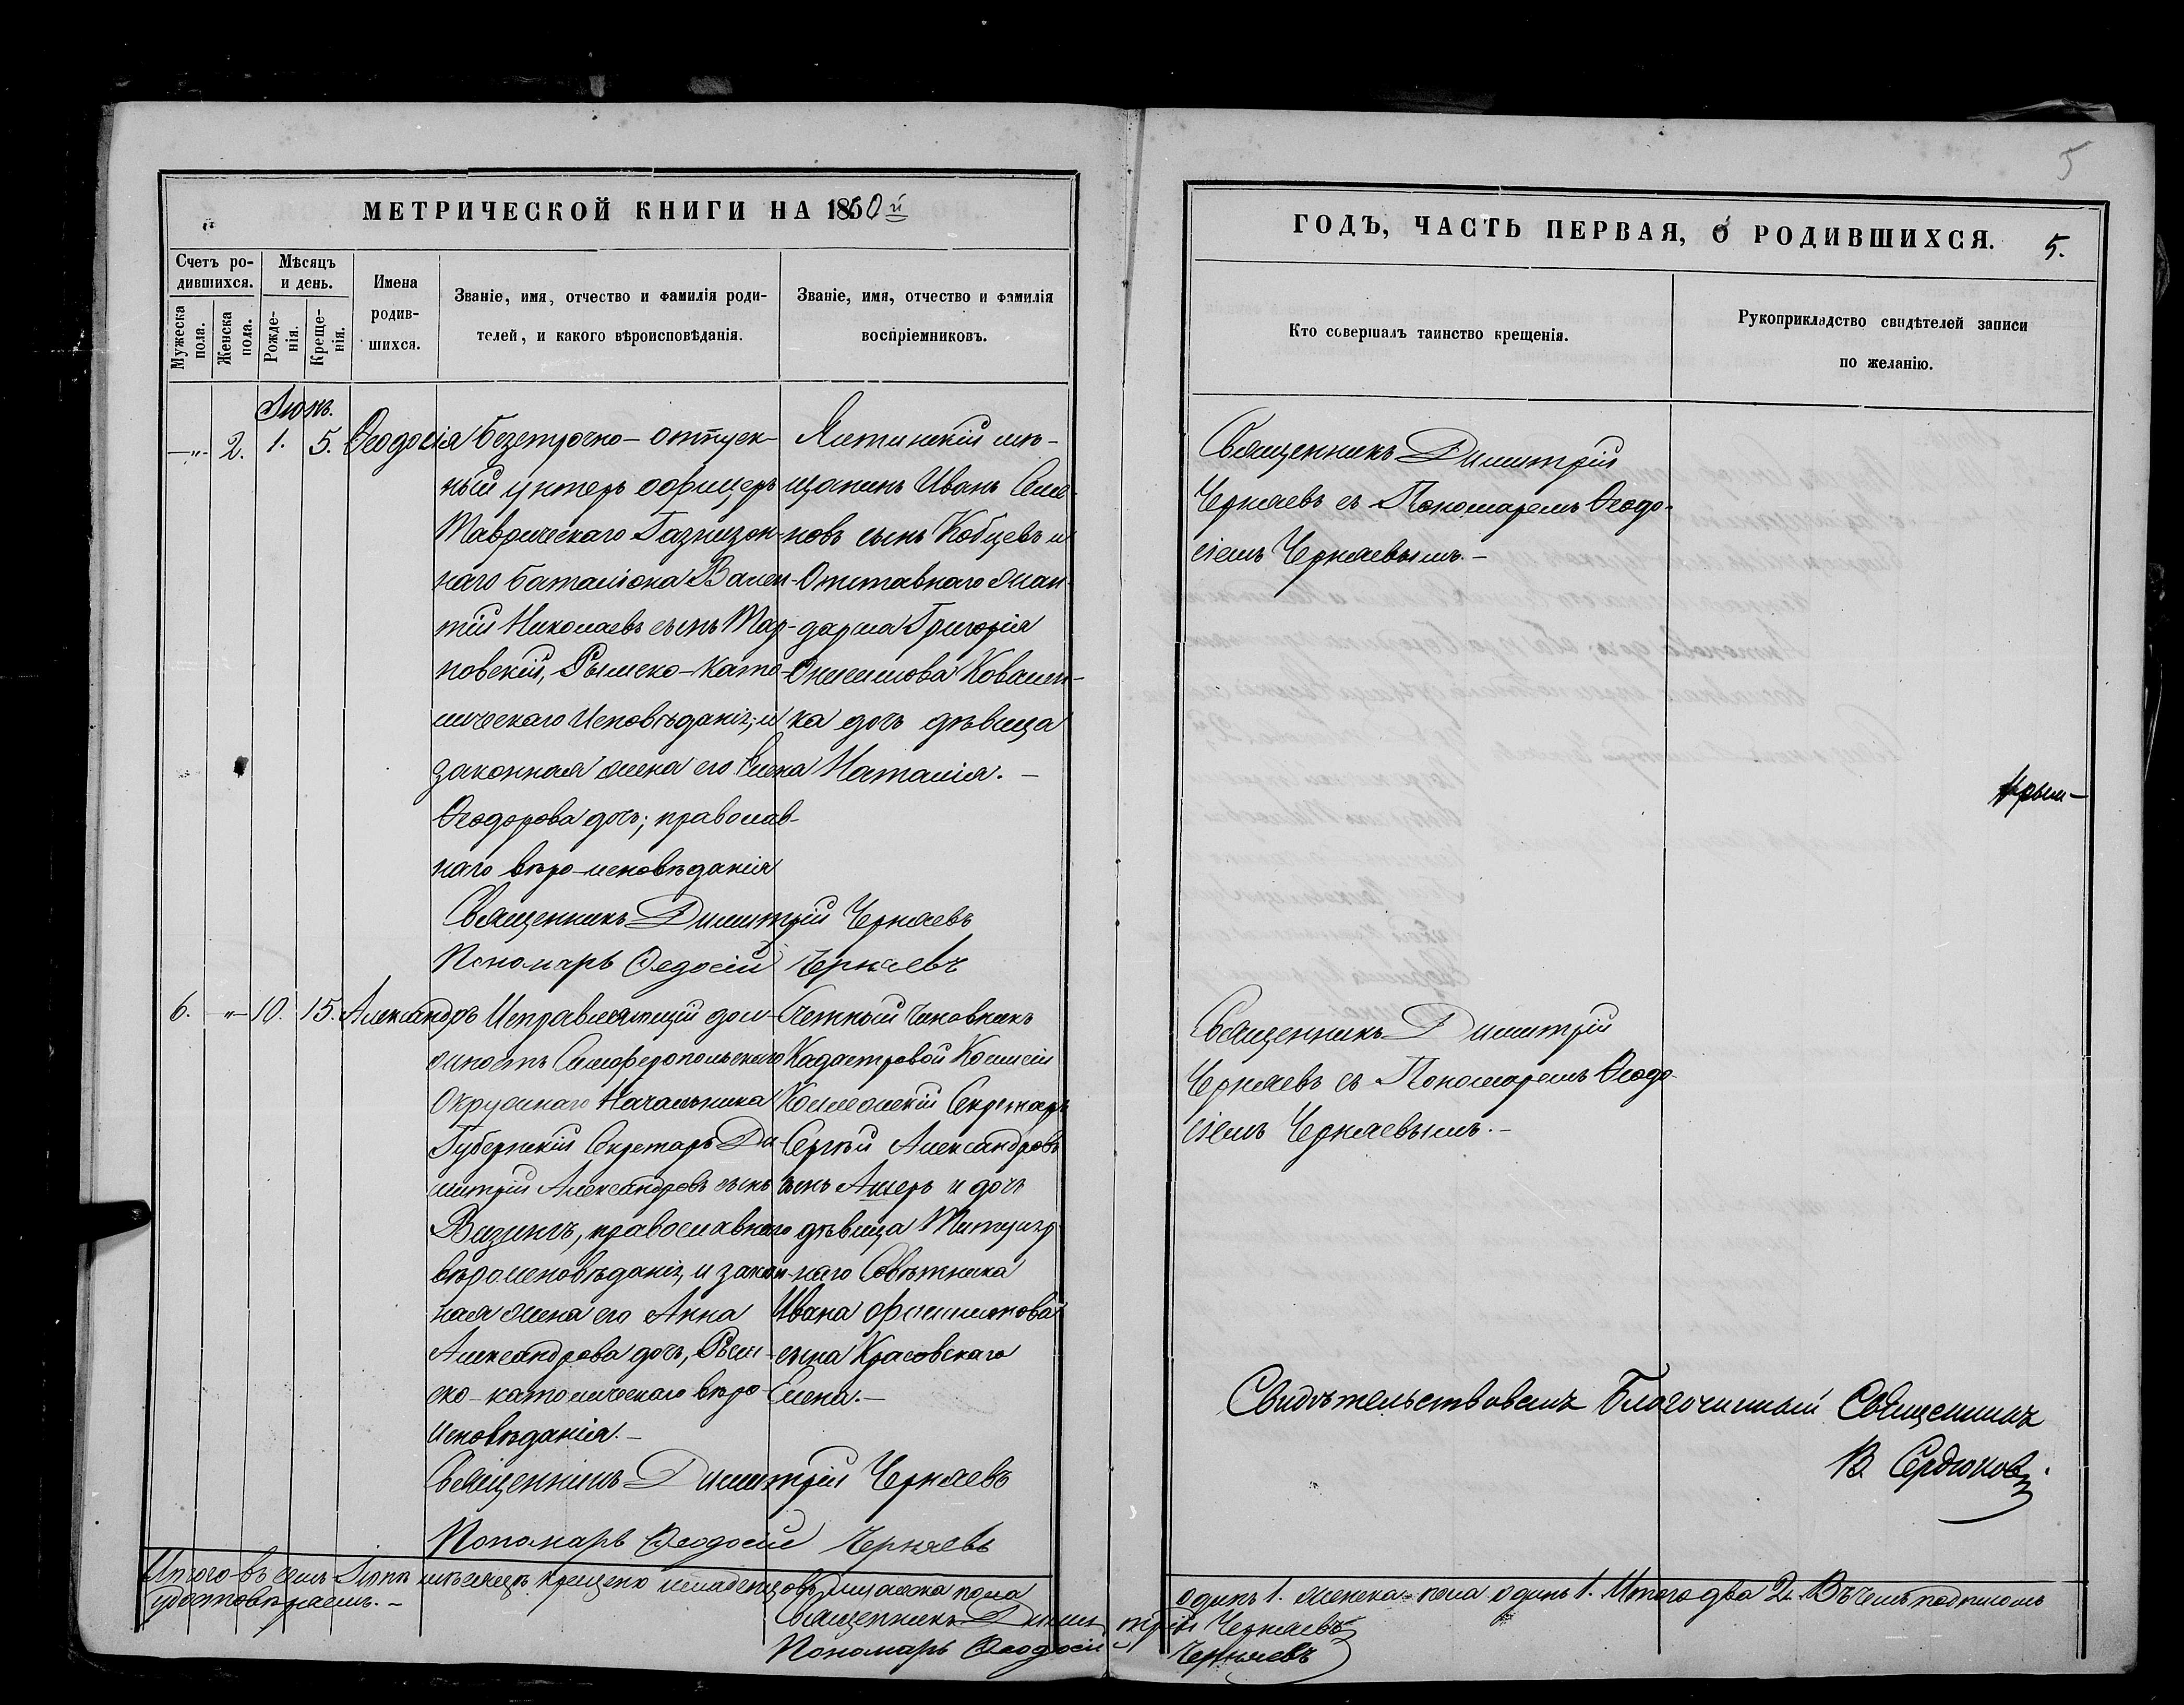 МЕТРИЧЕСКОЙ КНИГИ НА 1860й
Счетъ ро-
дившихся.
Мужеска пола.
Женска пола.
Мѣсяцъ
и день.
Рожде-
нія.
Креще-
нія.
Имена
родив-
шихся.
Званіе, имя, отчество и фамилія роди-
телей, и какого вѣроисповѣданія.
Званіе, имя, отчество и фамилія
воспріемниковъ.
Іюнь.
—"— 2. 1. 5. Ѳеодосія
Безсрочно-отпуск-
ный унтеръ офицеръ
Таврическаго Гарнизон-
наго баталіона Вален-
тій Николаевъ сынъ Тар-
новскій, Рымско-като-
лическаго исповѣданія; и
законная жена его Елена
Ѳеодорова дочь; православ-
наго вѣро-исповѣданія
Ялтинскій мѣ-
щанинъ Иванъ Семе-
новъ сынъ Кобцевъ и
Отставнаго жан-
дарма Григорія
Онисимова Ковален-
ка дочь дѣвица
Наталія.—
Священникъ Димитрій Черняевъ
Пономарь Ѳедосій Черняевъ
6. "— 10. 15. Александръ
Исправляющій дол-
жность Симферопольскаго
Окружнаго Начальника
Губернскій Секретарь Ди-
митрій Александровъ сынъ
Визингъ, православнаго
вѣроисповѣданія, и закон-
ная жена его Анна
Александрова дочь, Рым-
ско-католическаго вѣро-
исповѣданія.—
Счетный Чиновникъ
Кадастровой Комисіи
Коллежскій Секретарь
Сергѣй Александровъ
сынъ и дочь
дѣвица Титуляр-
наго Совѣтника
Ивана Филимонова
сына Красовскаго
Елена.—
Священникъ Димитрій Черняевъ
Пономарь Ѳеодосій Черняевъ
Итого въ семъ Іюнѣ мѣсяцѣ крещено младенцовъ мужеска пола
удостовѣряемъ.—
Священникъ Дими
Пономарь Ѳеодосій
5
ГОДЪ, ЧАСТЬ ПЕРВАЯ, О РОДИВШИХСЯ.
5.
Кто совершалъ таинство крещенія.
Рукоприкладство свидѣтелей записи
по желанію.
Священникъ Димитрій
Черняевъ съ Пономаремъ Ѳеодо-
сіемъ Черняевымъ.—
Священникъ Димитрій
Черняевъ съ Пономаремъ Ѳеодо-
сіемъ Черняевымъ.—
Свидѣтельствовалъ Благочинный Священникъ
В. Сердюковъ
одинъ 1. женска пола одинъ 1. Итого два 2. Въ чемъ подписомъ
трій Черняевъ
Черняевъ